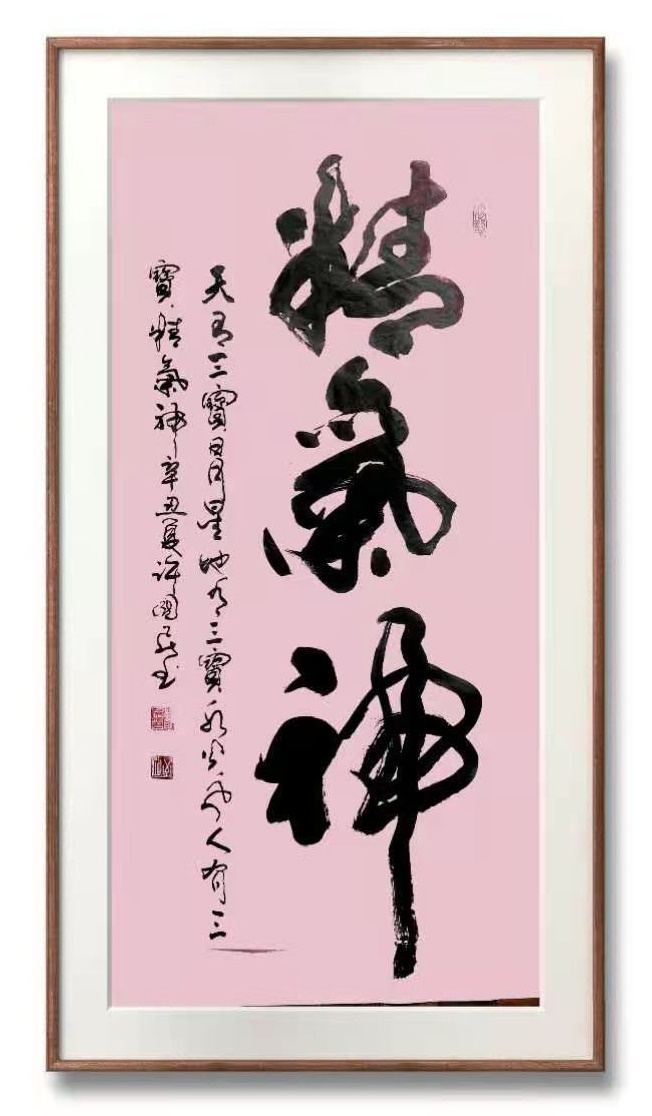 精氣神
天有三寶日月星地有三寶水火風人有三
寶精氣神辛丑夏許國